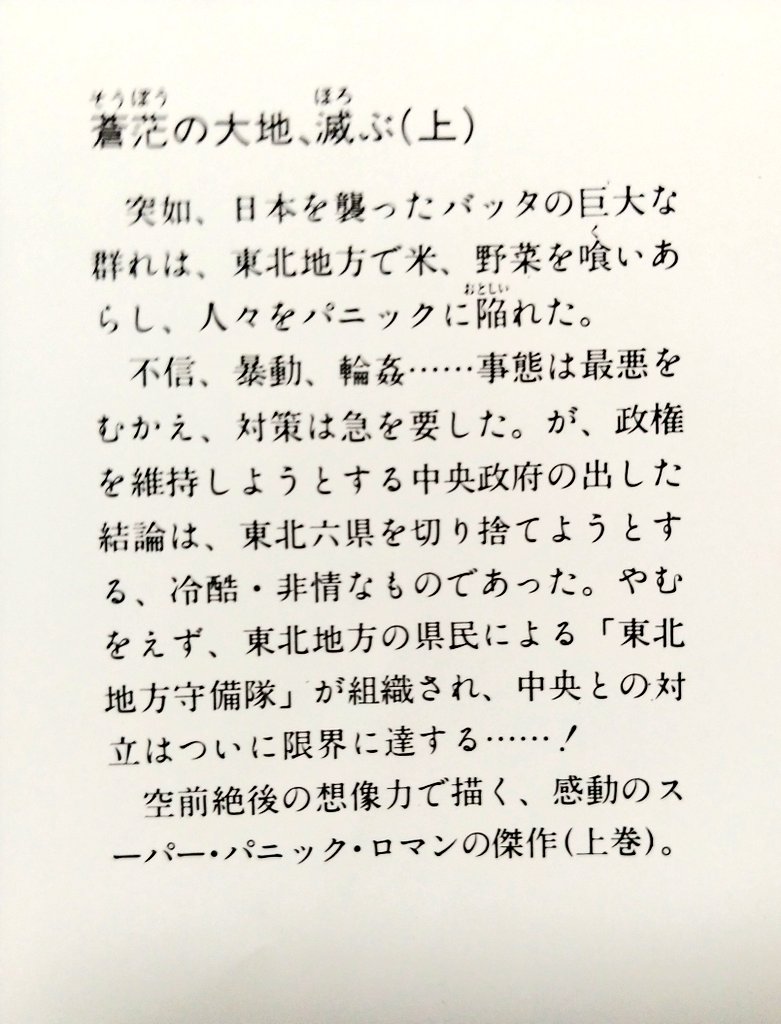 そうぼう ほろ
蒼茫の大地、滅ぶ(上)
突如、日本を襲ったバッタの巨大な
く
群れは、東北地方で米、野菜を喰いあ
おとしい
らし、人々をパニックに陥れた。
不信、暴動、輪姦……事態は最悪を
むかえ、対策は急を要した。が、政権
を維持しようとする中央政府の出した
結論は、東北六県を切り捨てようとす
る、冷酷・非情なものであった。やむ
をえず、東北地方の県民による「東北
地方守備隊」が組織され、中央との対
立はついに限界に達する……!
空前絶後の想像力で描く、感動のス
ーパー・パニック・ロマンの傑作(上巻)。